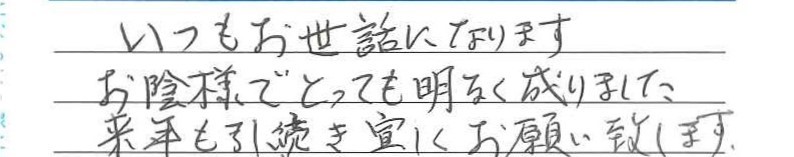 いつもお世話になります
お陰様でとっても明なく成りました
来年も引続き宜しくお願い致します.